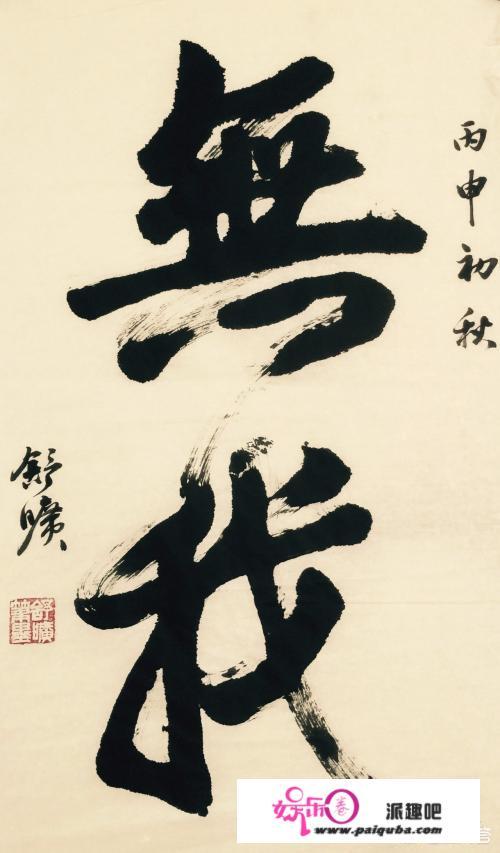 丙申初秋
無我
舒曠
舒曠
筆墨
娱乐圈 派趣吧
www.paiquba.com